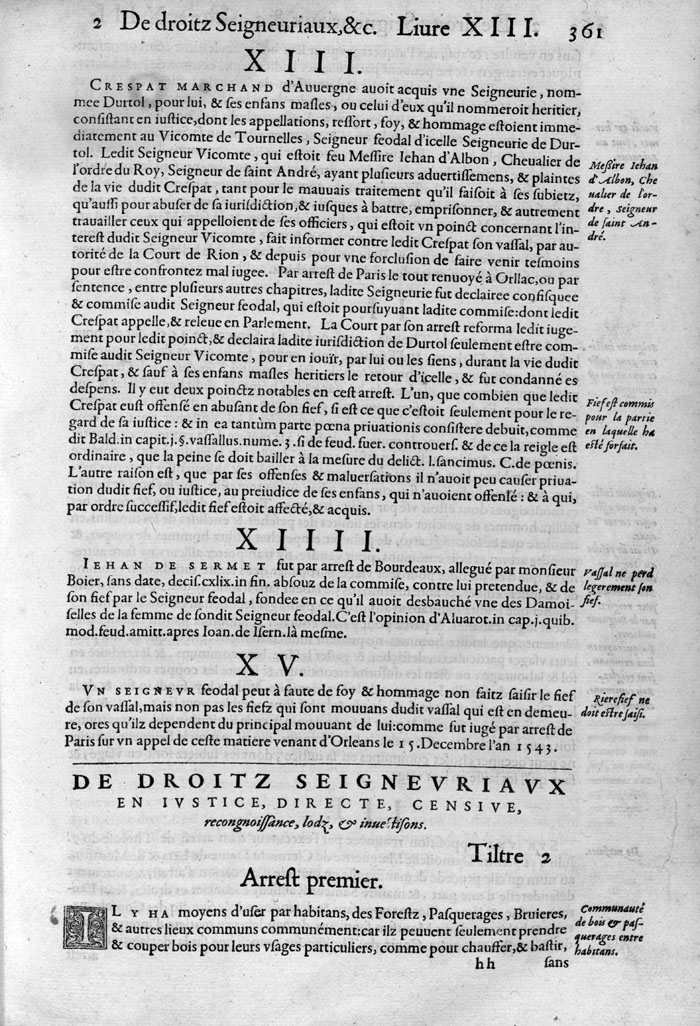 2 De droitz Seigneuriaux,&c. Liure XIII. 361
XIII.
CRESPAT MARCHAND d'Auuergne auoit acquis vne Seigneurie, nom-
mee Durtol, pour lui, & ses enfans masles, ou celui d'eux qu'il nommeroit heritier,
consistant en iustice,dont les appellations, ressort, foy, & hommage estoient imme-
diatement au Vicomte de Tournelles, Seigneur feodal d'icelle Seigneurie de Dur-
tol. Ledit Seigneur Vicomte, qui estoit feu Messire Iehan d'Albon, Cheualier de
l'ordre du Roy, Seigneur de saint André, ayant plusieurs aduertissemens, & plaintes
de la vie dudit Crespat, tant pour le mauuais traitement qu'il faisoit à ses subietz,
qu'aussi pour abuser de sa iurisdiction,& iusques à battre, emprisonner, & autrement
trauailler ceux qui appelloient de ses officiers, qui estoit vn poinct concernant l'in-
terest dudit Seigneur Vicomte, fait informer contre ledit Crespat son vassal, par au-
torité de la Court de Rion, & depuis pour vne forclusion de faire venir tesmoins
pour estre confrontez mal iugee. Par arrest de Paris le tout renuoyé à Orllac,ou par
sentence, entre plusieurs autres chapitres, ladite Seigneurie fut declairee confisquee
& commise audit Seigneur feodal, qui estoit poursuyuant ladite commise:dont ledit
Crespat appelle,& releue en Parlement. La Court par son arrest reforma ledit iuge-
ment pour ledit poinct,& declaira ladite iurisdiction de Durtol seulement estre com-
mise audit Seigneur Vicomte, pour en iouïr, par lui ou les siens, durant la vie dudit
Crespat, & sauf à ses enfans masles heritiers le retour d'icelle, & fut condanné es
despens. Il y eut deux poinctz notables en cest arrest. L'un, que combien que ledit
Crespat eust offensé en abusant de son fief, si est ce que c'estoit seulement pour le re-
gard de sa iustice : & in ea tantùm parte pœna priuationis consistere debuit,comme
dit Bald.in capit.j.§.vassallus.nume.3.si de feud. fuer. controuers. & de ce la reigle est
ordinaire, que la peine se doit bailler à la mesure du delict. l.sancimus. C.de pœnis.
L'autre raison est, que par ses offenses & maluersations il n'auoit peu causer priua-
tion dudit fief, ou iustice, au preiudice de ses enfans, qui n'auoient offensé : & à qui,
par ordre successif,ledit fief estoit affecté,& acquis.
Messire Iehan
d'Albon, Che
ualier de l'or-
dre, Seigneur
de saint An-
dré.
Fief est commis
pour la partie
en laquelle ha
esté forfait.
XIIII.
IEHAN DE SERMET fut par arrest de Bourdeaux, allegué par monsieur
Boier, sans date, decis.cxlix.in fin. absouz de la commise, contre lui pretendue, & de
son fief par le Seigneur feodal, fondee en ce qu'il auoit desbauché vne des Damoi-
selles de la femme de sondit Seigneur feodal.C'est l'opinion d'Aluarot.in cap.j.quib.
mod.feud.amitt.apres Ioan.de Isern.là mesme.
Vassal ne perd
legerement son
fief.
XV.
VN SEIGNEVR feodal peut à faute de foy & hommage non faitz saisir le fief
de son vassal,mais non pas les fiefz qui sont mouuans dudit vassal qui est en demeu-
re, ores qu'ilz dependent du principal mouuant de lui:comme fut iugé par arrest de
Paris sur vn appel de ceste matiere venant d'Orleans le 15.Decembre l'an 1543.
Rierefief ne
doit estre saisi.
DE DROITZ SEIGNEVRIAVX
EN IVSTICE, DIRECTE, CENSIVE,
recongnoissance, lodz, & inuestisons.
Tiltre 2
Arrest premier.
IL Y HA moyens d'user par habitans, des Forestz, Pasquerages, Bruieres,
& autres lieux communs communément:car ilz peuuent seulement prendre
& couper bois pour leurs vsages particuliers, comme pour chauffer,& bastir,
Communauté
de bois & pas-
querages entre
habitans.
hh sans